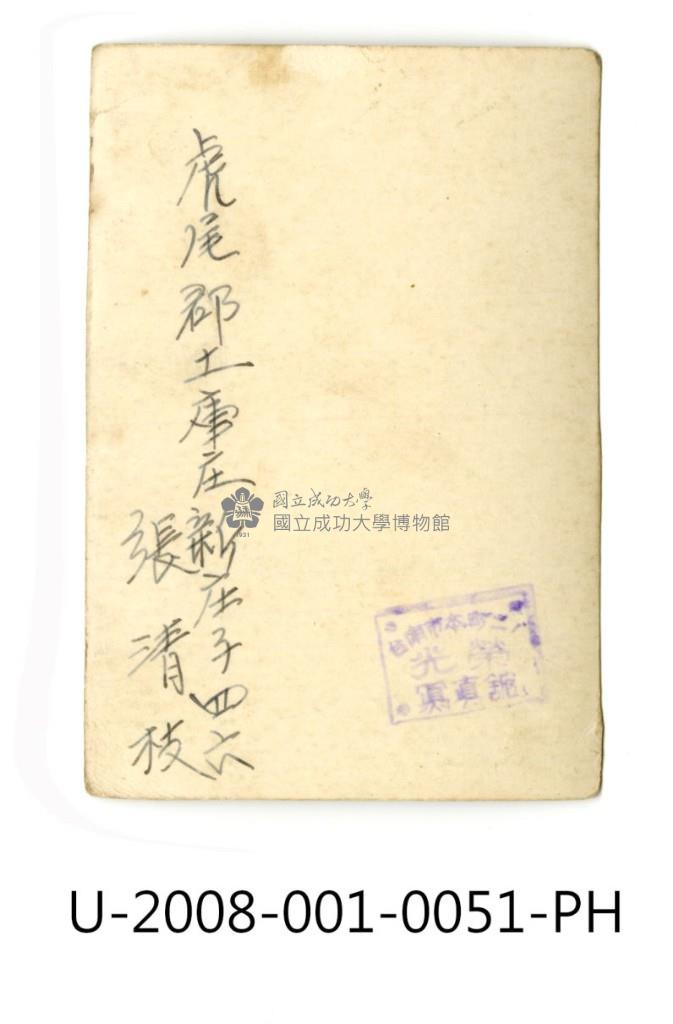 虎尾郡土庫庄新庄子四六
張清枝
國立成功大學
國立成功大學博物館
1931
台南市本町二ノ
光榮
寫真館
U-2008-001-0051-PH